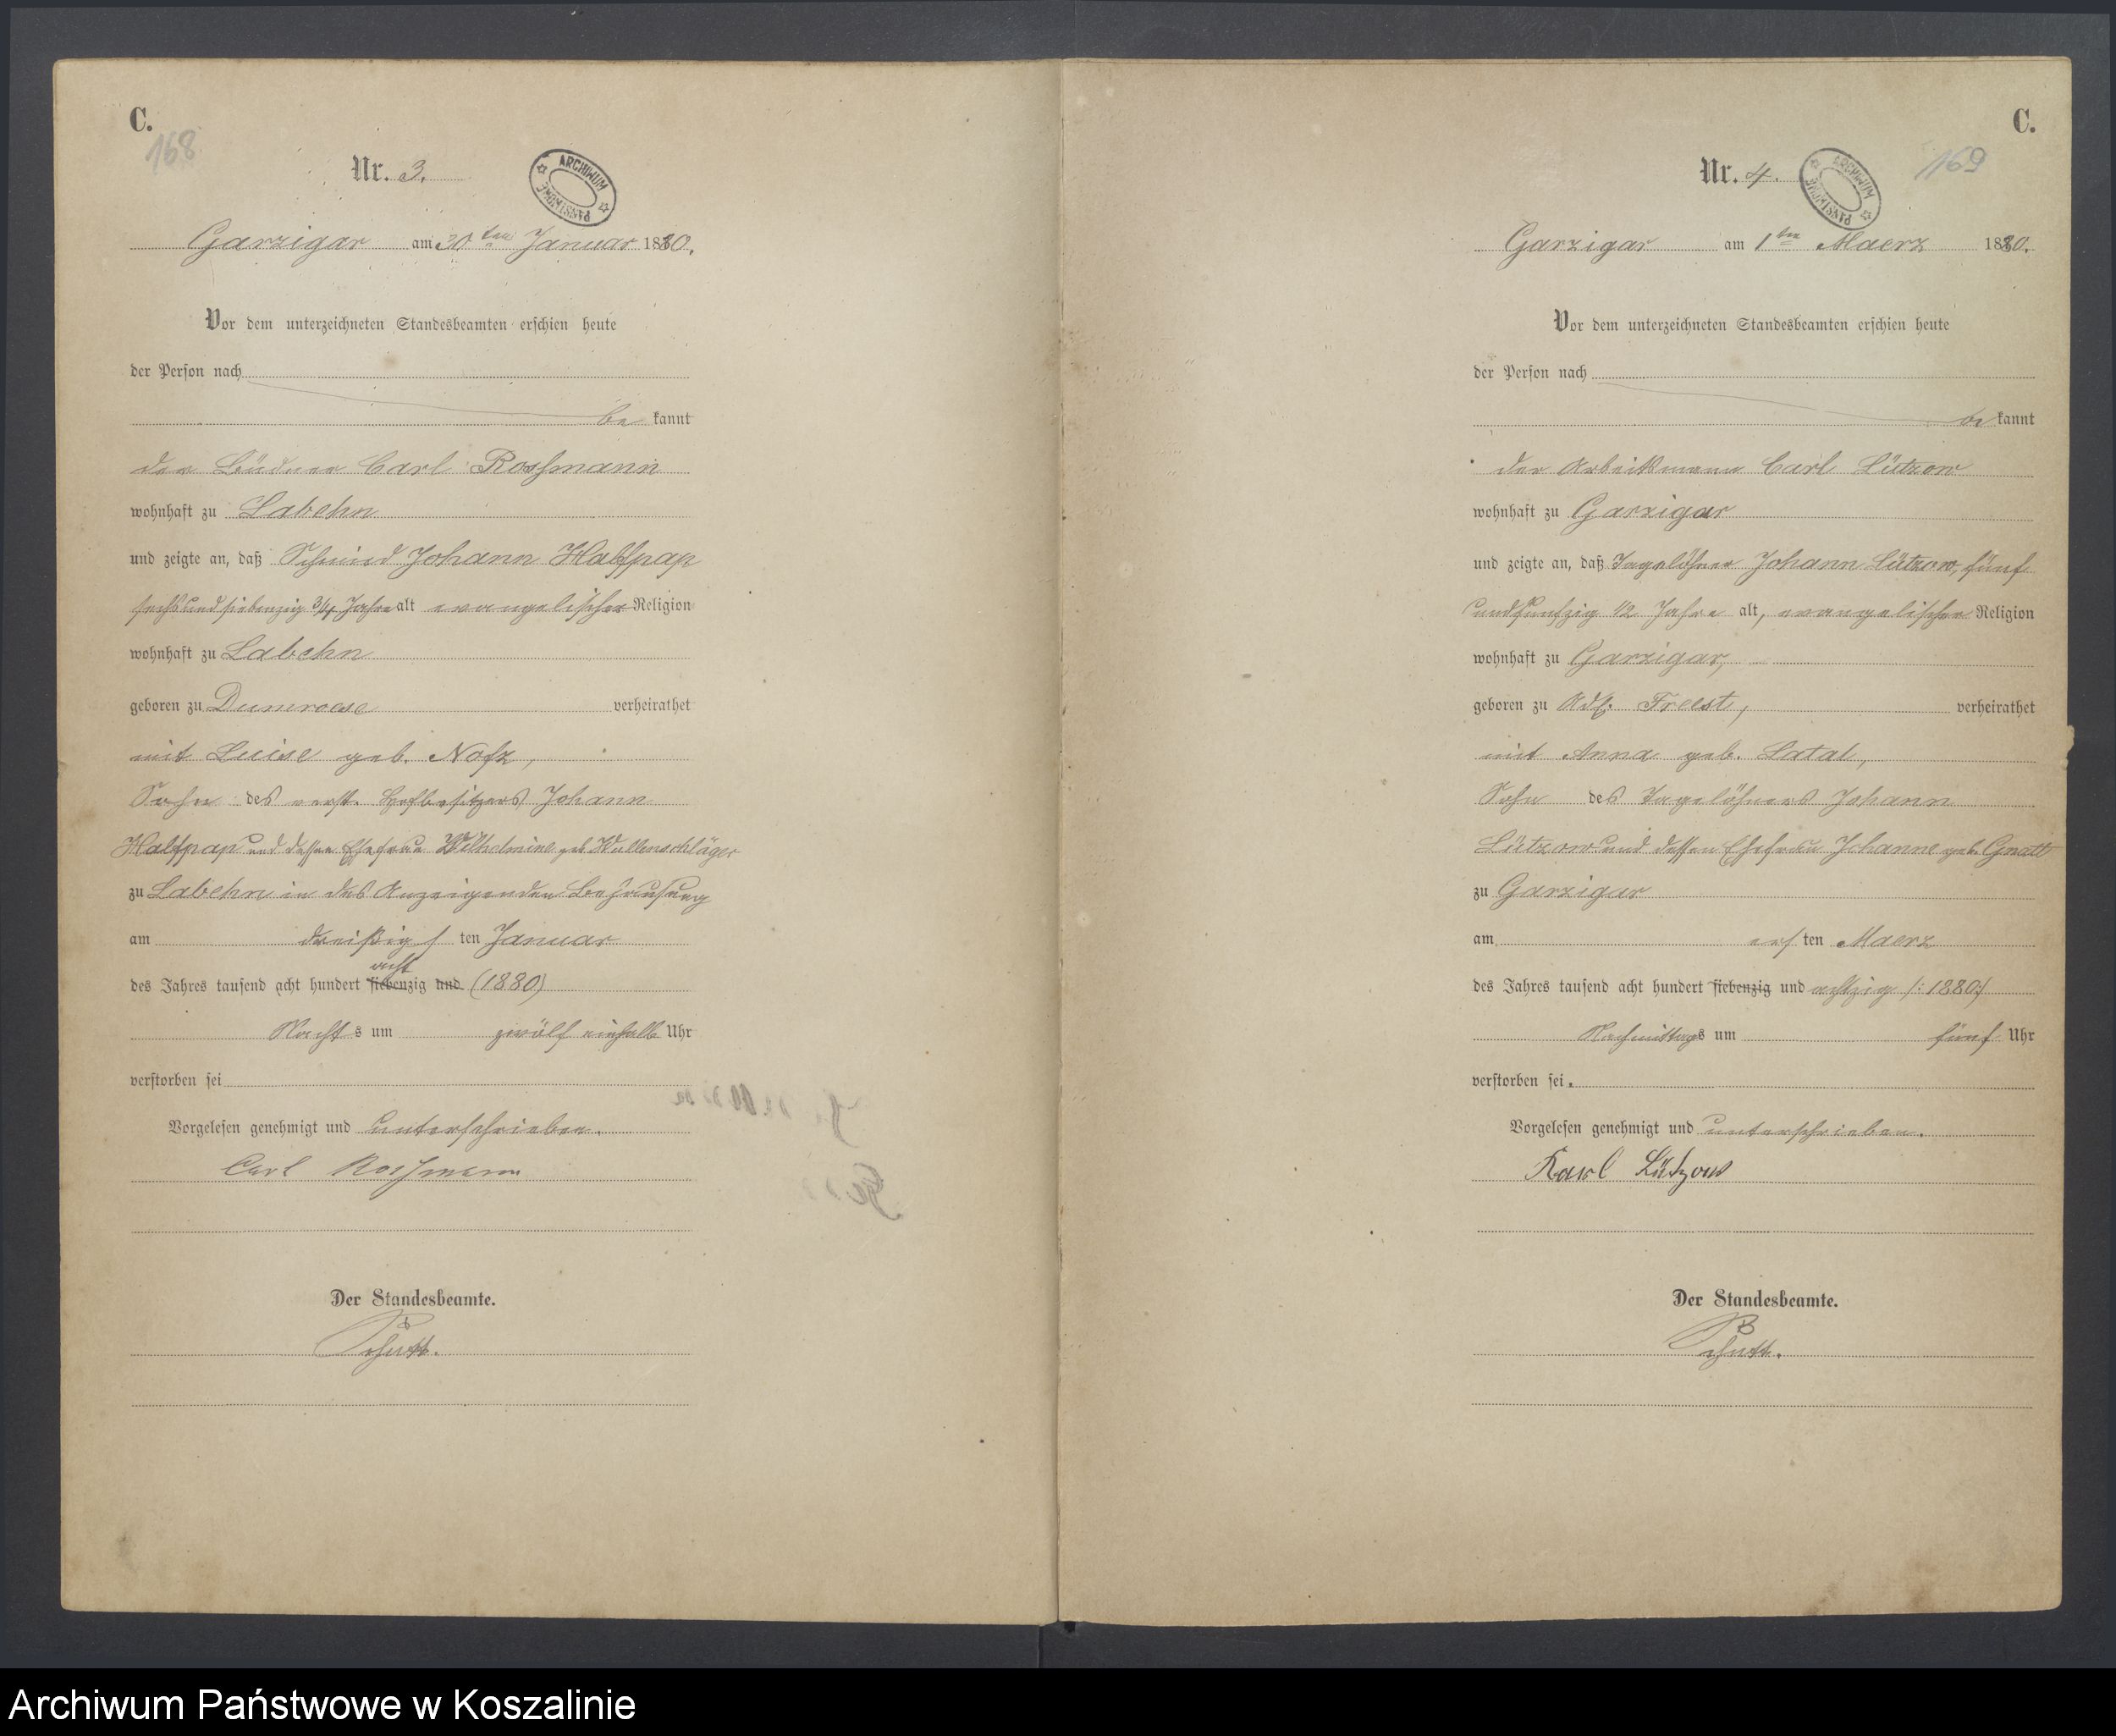 C.
168
Nr. 3.
ARCHIWUM PAŃSTWOWE
Garzigar am 30ten Januar 1880.
Vor dem unterzeichneten Standesbeamten erschien heute
der Person nach
be kannt
der Büdner Carl Roshmann
wohnhaft zu Labehn
und zeigte an, daß Schmied Johann Halfpap
sechsundsiebenzig 3/4 Jahre alt evangelischer Religion
wohnhaft zu Labehn
geboren zu Dumroese verheirathet
mit Luise geb. Nofz,
Sohn des verst. Hofbesitzers Johann
Halfpap und dessen Ehefrau Wilhelmine geb. Wullenschläger
zu Labehn in des Anzeigenden Behausung
am dreißigsten Januar
acht
des Jahres tausend acht hundert siebenzig und (1880)
Nachts um zwölf einhalb Uhr
verstorben sei
Vorgelesen genehmigt und unterschrieben.
Carl Roshmann
Der Standesbeamte.
Schutt.
C.
169
Nr. 4.
ARCHIWUM PAŃSTWOWE
Garzigar am 1ten Maerz 1880.
Vor dem unterzeichneten Standesbeamten erschien heute
der Person nach
be kannt
der Arbeitsmann Carl Lützow
wohnhaft zu Garzigar
und zeigte an, daß Tagelöhner Johann Lützow, fünf
undfünfzig 1/2 Jahre alt, evangelischer Religion
wohnhaft zu Garzigar,
geboren zu Adl. Freest, verheirathet
mit Anna geb. Latal,
Sohn des Tagelöhners Johann
Lützow und dessen Ehefrau Johanne geb. Gnatt
zu Garzigar
am ersten Maerz
des Jahres tausend acht hundert siebenzig und achtzig /:1880:/
Nachmittags um fünf Uhr
verstorben sei.
Vorgelesen genehmigt und unterschrieben.
Karl Lützow
Der Standesbeamte.
Schutt.
Archiwum Państwowe w Koszalinie